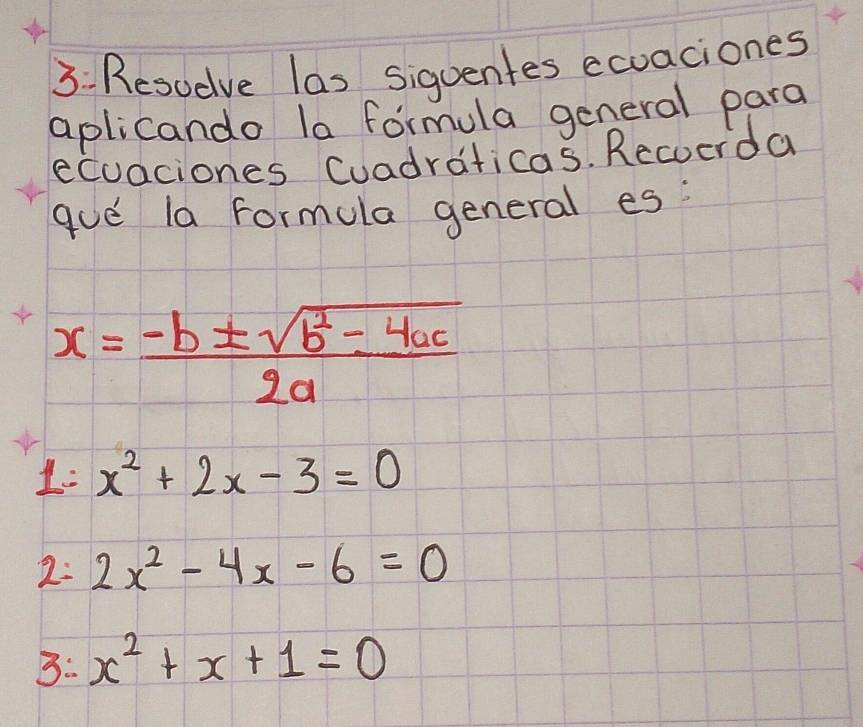 3:- Resuelve las siguentes ecuaciones
aplicando la fórmula general para
ecuaciones cuadráticas. Recuerda
qué la formula general es:
x = -b ± √b² - 4ac / 2a
1:- x² + 2x - 3 = 0
2:- 2x² - 4x - 6 = 0
3:- x² + x + 1 = 0